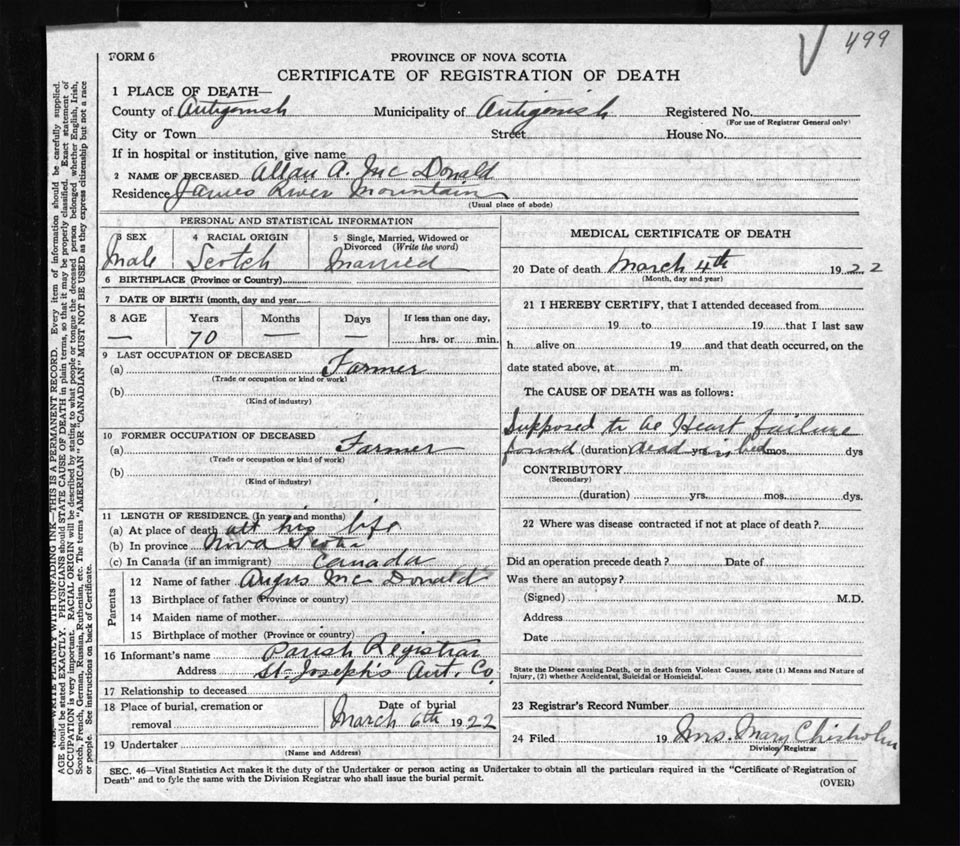 499
FORM 6
PROVINCE OF NOVA SCOTIA
CERTIFICATE OF REGISTRATION OF DEATH
1 PLACE OF DEATH—
County of Antigonish Municipality of Antigonish Registered No.
(For use of Registrar General only)
City or Town Street House No.
If in hospital or institution, give name
2 NAME OF DECEASED Allan A. Mc Donald
Residence James River Mountain
(Usual place of abode)
PERSONAL AND STATISTICAL INFORMATION
3 SEX 4 RACIAL ORIGIN 5 Single, Married, Widowed or
Divorced (Write the word)
Male Scotch Married
6 BIRTHPLACE (Province or Country)
7 DATE OF BIRTH (month, day and year)
8 AGE Years Months Days If less than one day,
— 70 — — hrs. or min.
9 LAST OCCUPATION OF DECEASED
(a) Farmer
(Trade or occupation or kind or work)
(b)
(Kind of industry)
10 FORMER OCCUPATION OF DECEASED
(a) Farmer
(Trade or occupation or kind of work)
(b)
(Kind of industry)
11 LENGTH OF RESIDENCE (In years and months)
(a) At place of death all his life
(b) In province Nova Scotia
(c) In Canada (if an immigrant) Canada
Parents
12 Name of father Angus Mc Donald
13 Birthplace of father (Province or country)
14 Maiden name of mother
15 Birthplace of mother (Province or country)
16 Informant's name Parish Registrar
Address St. Joseph's Ant. Co.
17 Relationship to deceased
18 Place of burial, cremation or removal
Date of burial
March 6th 1922
19 Undertaker
(Name and Address)
MEDICAL CERTIFICATE OF DEATH
20 Date of death March 4th 1922
(Month, day and year)
21 I HEREBY CERTIFY, that I attended deceased from
19 to 19 that I last saw
h alive on 19 and that death occurred, on the
date stated above, at m.
The CAUSE OF DEATH was as follows:
Supposed to be Heart failure
found (duration) dead yrs. in bed mos. dys
CONTRIBUTORY
(Secondary)
(duration) yrs. mos. dys.
22 Where was disease contracted if not at place of death?
Did an operation precede death? Date of
Was there an autopsy?
(Signed) M.D.
Address
Date
State the Disease causing Death, or in death from Violent Causes, state (1) Means and Nature of
Injury, (2) whether Accidental, Suicidal or Homicidal.
23 Registrar's Record Number
24 Filed 19 Mrs. Mary Chisholm
Division Registrar
SEC. 46—Vital Statistics Act makes it the duty of the Undertaker or person acting as Undertaker to obtain all the particulars required in the "Certificate of Registration of
Death" and to fyle the same with the Division Registrar who shall issue the burial permit.
(OVER)
WRITE PLAINLY WITH UNFADING INK—THIS IS A PERMANENT RECORD. Every item of information should be carefully supplied.
AGE should be stated EXACTLY. PHYSICIANS should STATE CAUSE OF DEATH in plain terms, so that it may be properly classified. Exact statement of
OCCUPATION is very important. RACIAL ORIGIN will be described by stating to what people or tongue the deceased person belonged whether English, Irish,
Scotch, French, German, Russian, Ruthenian, etc. The terms "AMERICAN" OR "CANADIAN" MUST NOT BE USED as they express citizenship but not a race
or people. See instructions on back of Certificate.